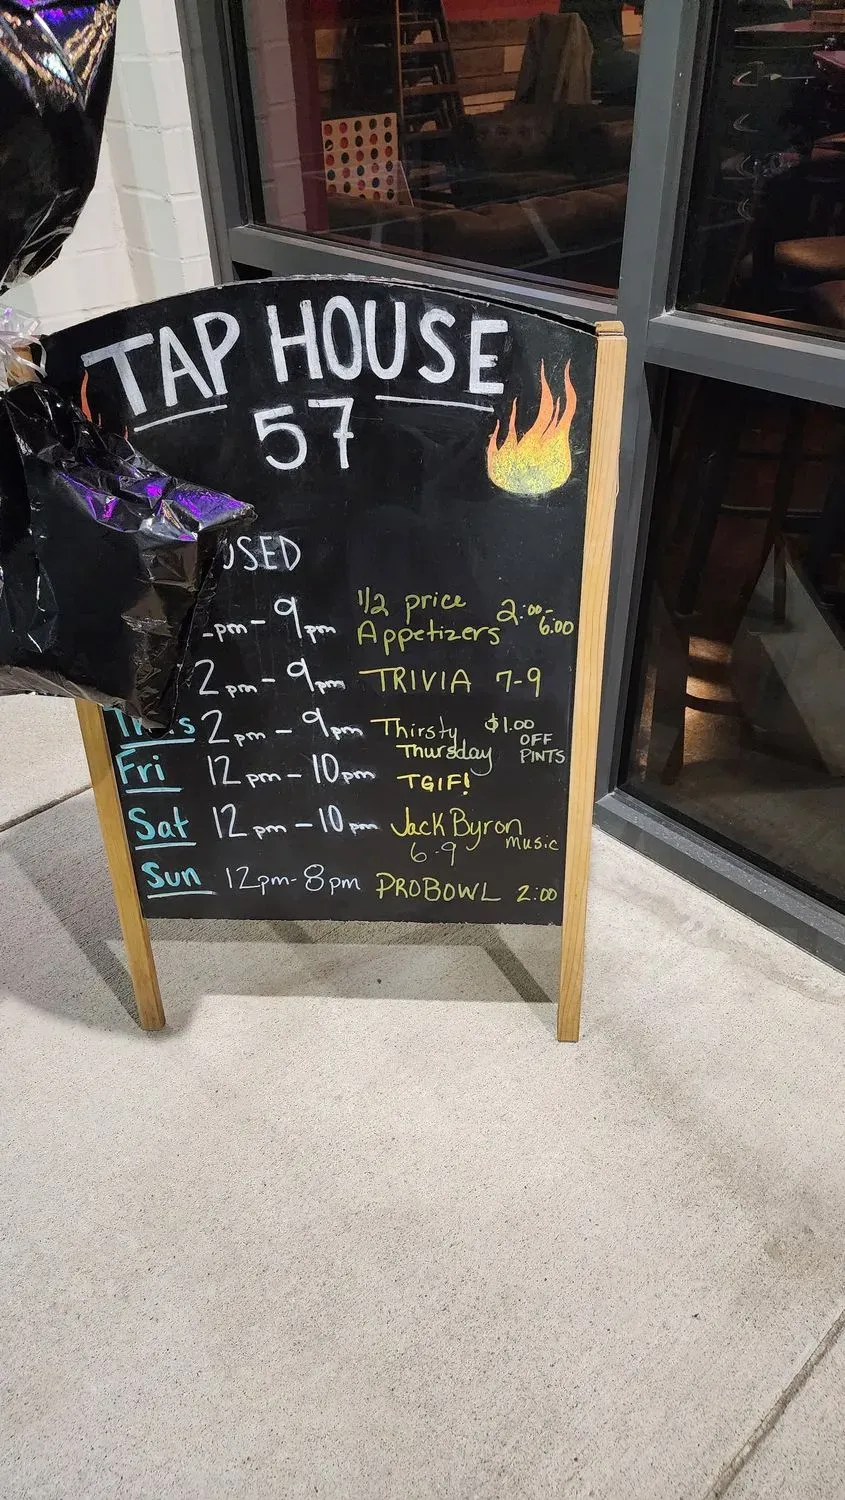 TAP HOUSE
57
USED
pm - 9pm 1/2 price Appetizers 2:00-6:00
2pm - 9pm TRIVIA 7-9
Thurs 2pm - 9pm Thirsty Thursday $1.00 OFF PINTS
Fri 12pm - 10pm TGIF!
Sat 12pm - 10pm Jack Byron music 6-9
Sun 12pm - 8pm PROBOWL 2:00